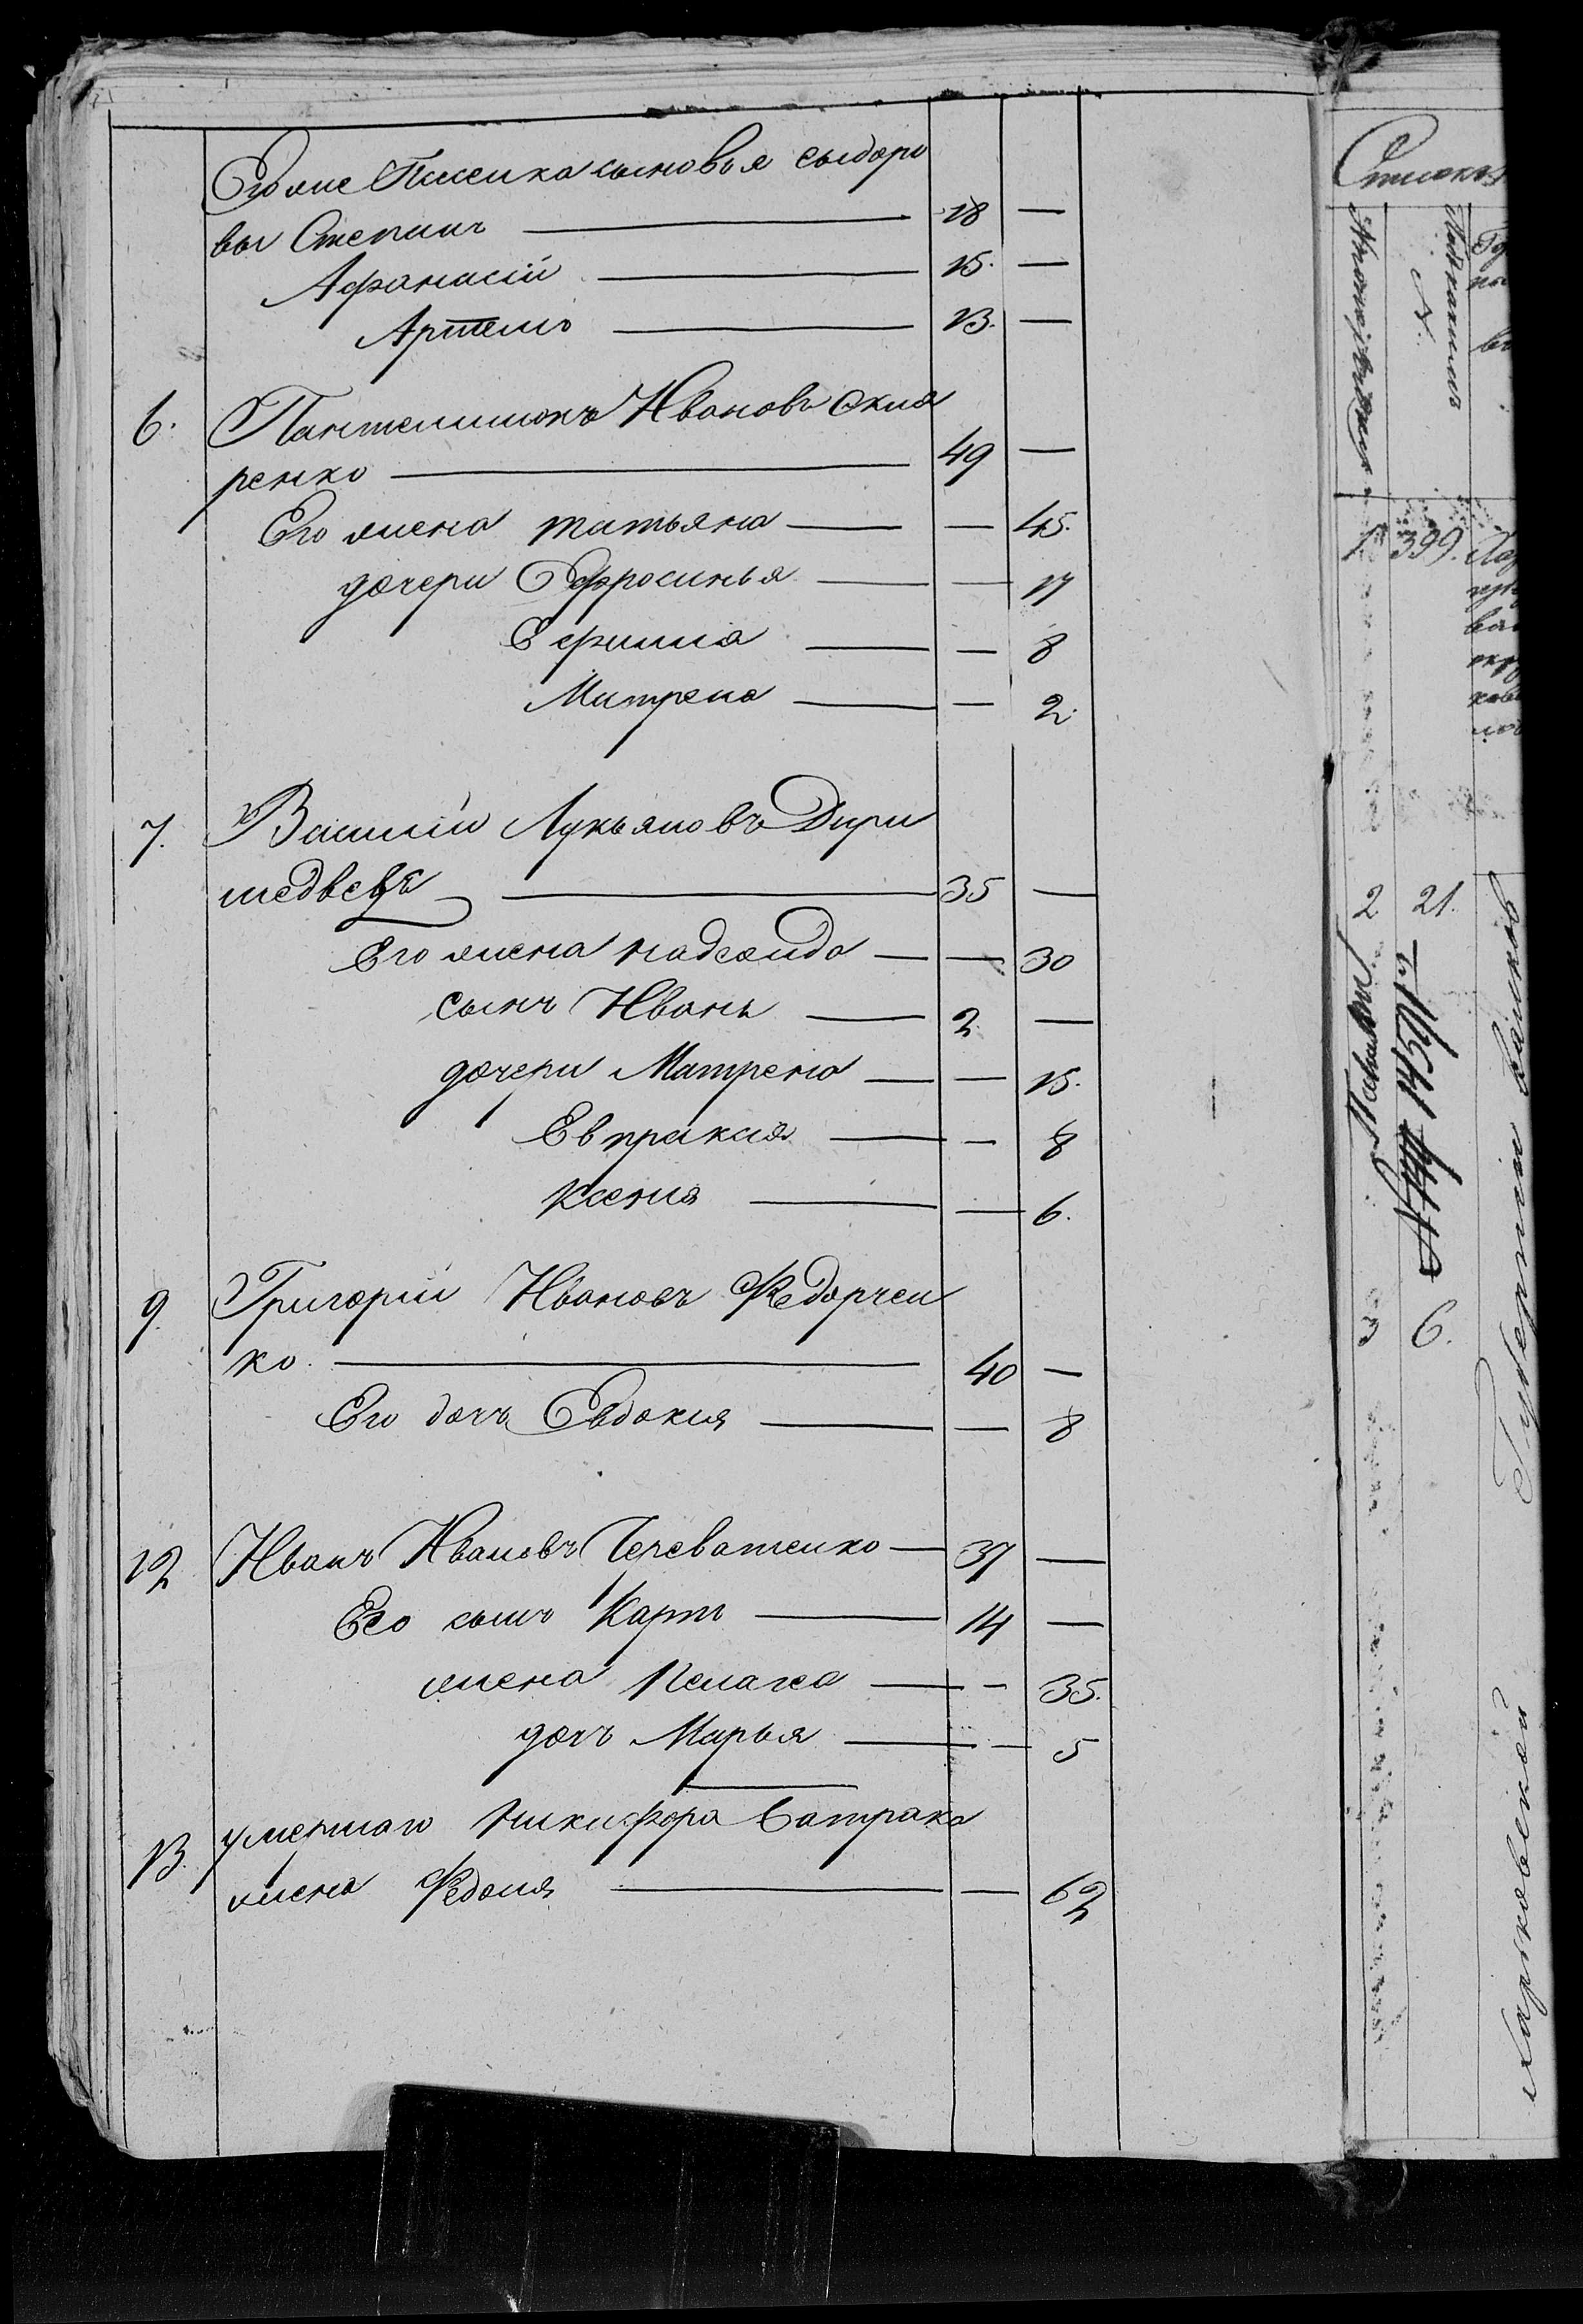 Его же Пасенка сыновья сыдоро
вы Степанъ — 18 —
Афанасій — 15. —
Артемъ — 13. —
6. Пантелимонъ Ивановъ Скля
ренко — 49 —
Его жена татьяна — — 45.
дочери Ефросинья — — 17
Ефимия — — 8
Матрена — — 2.
7. Василій Лукьяновъ Дири
медведя — 35 —
Его жена надежда — — 30
сынъ Иванъ — 2. —
дочери Матрена — — 15.
Евпраксия — — 8
Ксения — — 6.
9. Григорій Ивановъ Федорчен
ко. — 40 —
Его дочь Евдокия — — 8
12 Иванъ Ивановъ Череватенко — 37 —
Его сынъ Карпъ — 14 —
жена Пелагея — — 35.
дочь Марья — — 5
13. умершаго Никифора Батрака
жена Федосия — — 62
Списокъ
1 399.
2 21.
3 6.
Харьковской Губерніи